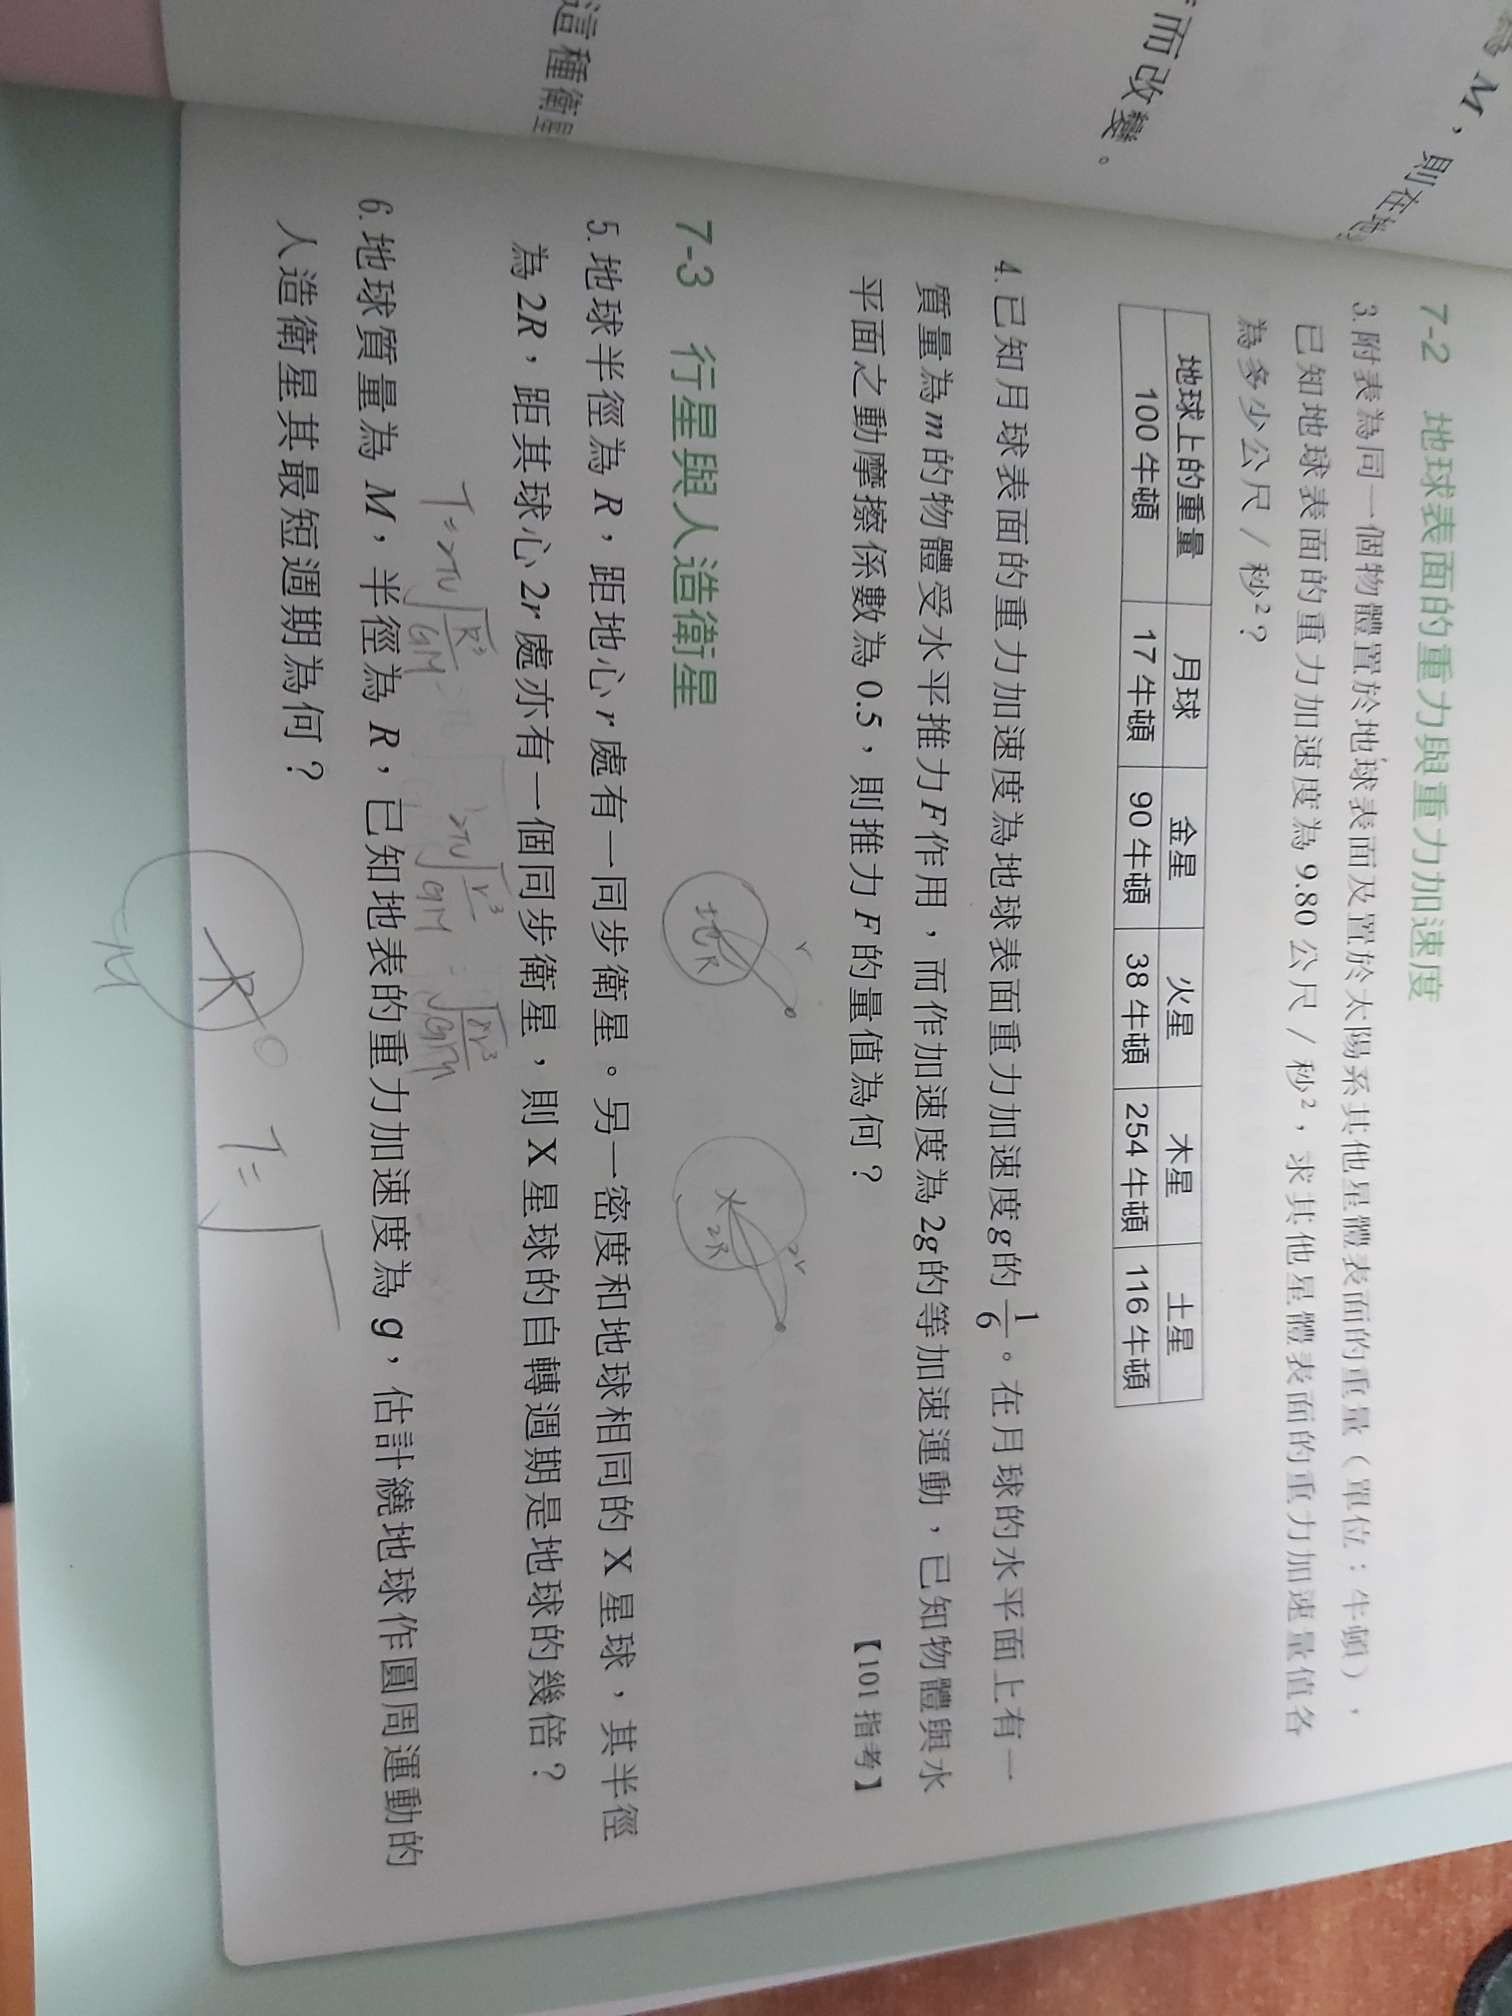 為 M，則在地
而改變。
這種衛星
7-2 地球表面的重力與重力加速度
3.附表為同一個物體置於地球表面及置於太陽系其他星體表面的重量（單位：牛頓），
已知地球表面的重力加速度為 9.80 公尺／秒²，求其他星體表面的重力加速量值各
為多少公尺／秒²？
地球上的重量 月球 金星 火星 木星 土星
100 牛頓 17 牛頓 90 牛頓 38 牛頓 254 牛頓 116 牛頓
4.已知月球表面的重力加速度為地球表面重力加速度g的 1/6。在月球的水平面上有一
質量為m的物體受水平推力F作用，而作加速度為2g的等加速運動，已知物體與水
平面之動摩擦係數為0.5，則推力F的量值為何？
【101指考】
7-3 行星與人造衛星
地R
r
X
2R
2r
5.地球半徑為R，距地心r處有一同步衛星。另一密度和地球相同的X星球，其半徑
為2R，距其球心2r處亦有一個同步衛星，則X星球的自轉週期是地球的幾倍？
T=2π√R³/GM
2π√r³/GM
6.地球質量為M，半徑為R，已知地表的重力加速度為g，估計繞地球作圓周運動的
人造衛星其最短週期為何？
R
M
T=√